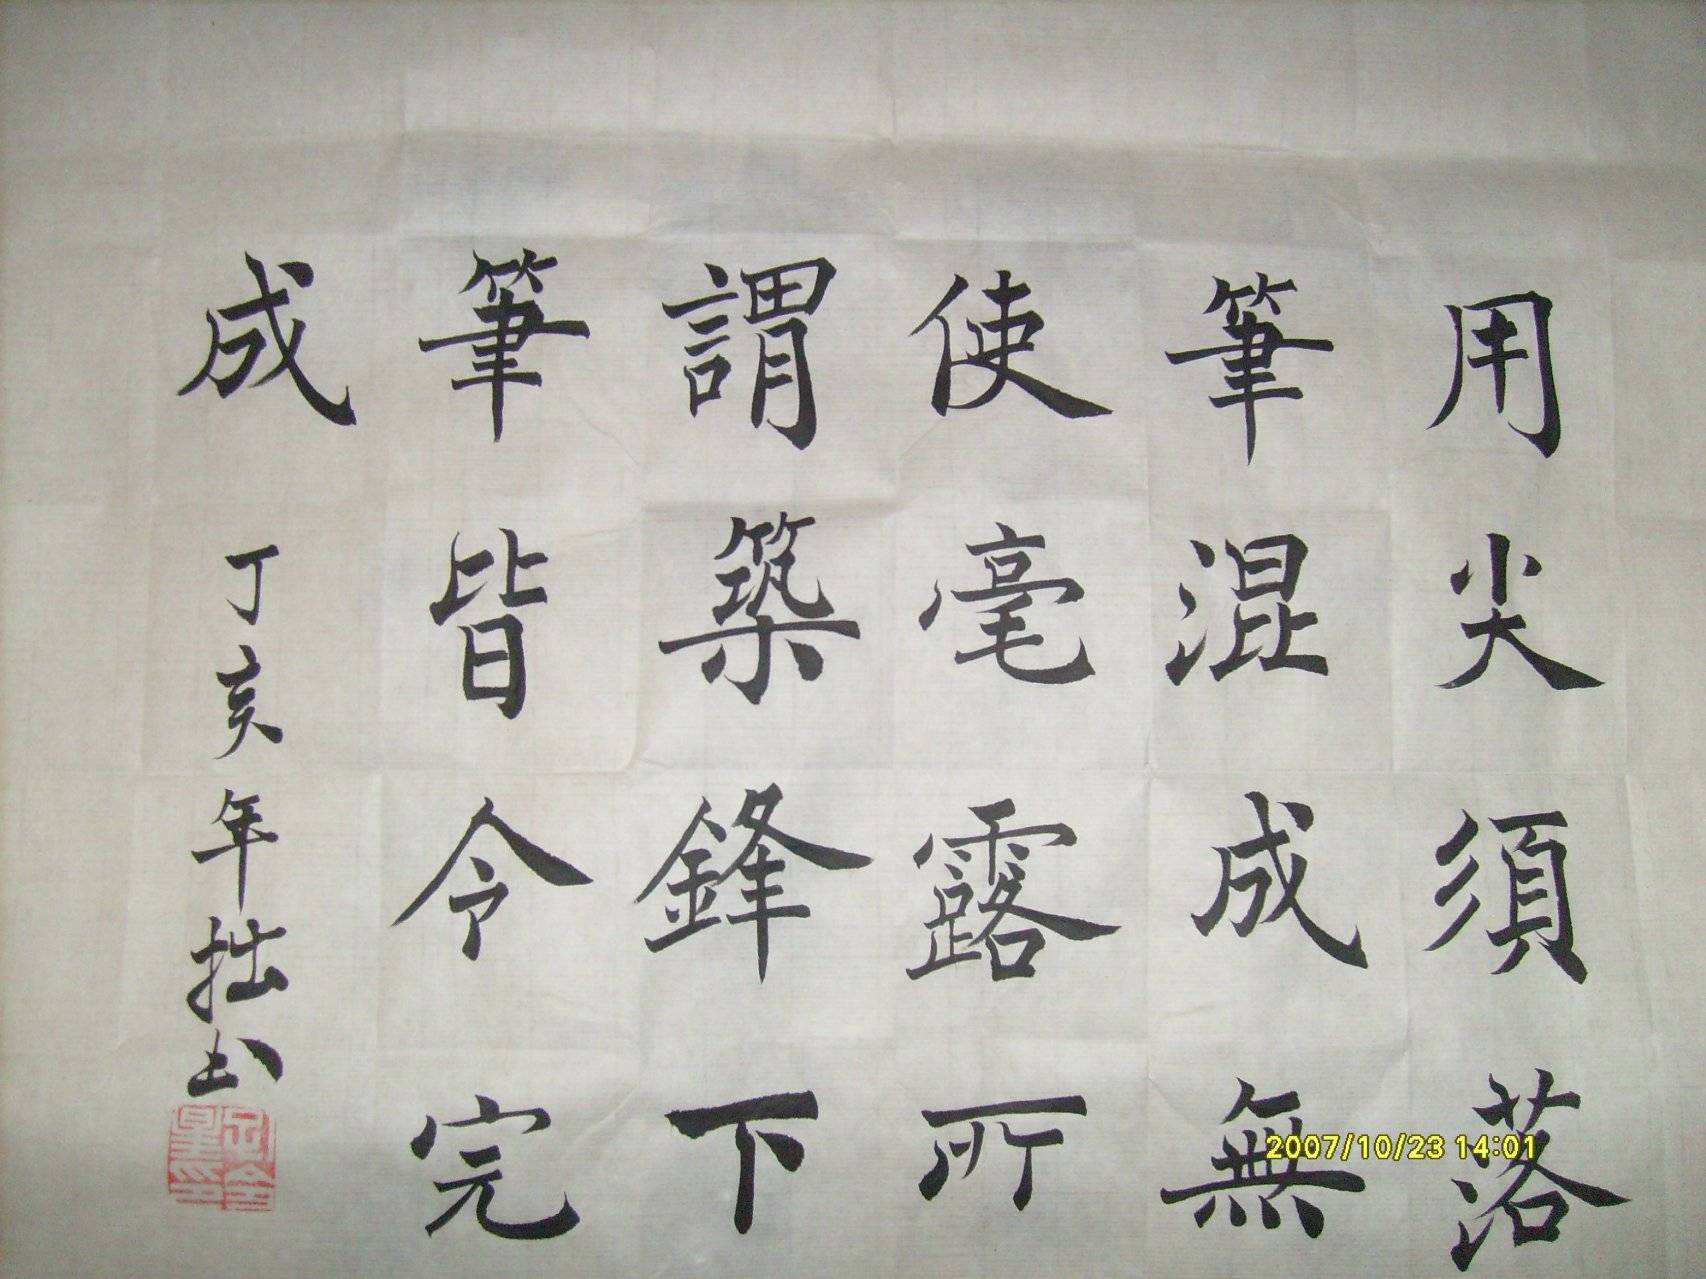 用尖須落
筆混成無
使毫露所
謂築鋒下
筆皆令完
成
丁亥年拙书
2007/10/23 14:01